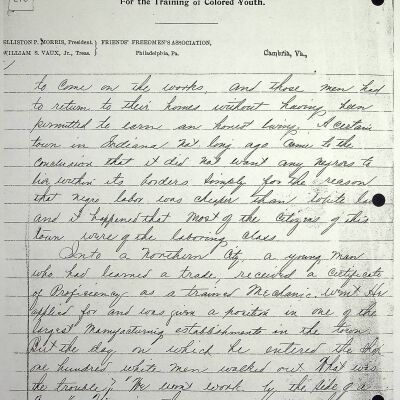 For the Training of Colored Youth.
ELLISTON P. MORRIS, President.
WILLIAM S. VAUX, Jr., Treas.
FRIENDS' FREEDMEN'S ASSOCIATION,
Philadelphia, Pa.
Cambria, Va.,
to come on the works, and those men had
to return to their homes without having been
permitted to earn an honest living. A certain
town in Indiana not long ago came to the
conclusion that it did not want any negros to
live within its borders simply for the reason
that negro labor was cheaper than white
and it happened that most of the citizens of this
town were of the laboring class
Into a Northern City, a young man
who had learned a trade, received a Certificate
of Proficiency as a trained Mechanic, went He
applied for and was given a position in one of the
largest Manufacturing establishments in the town.
But the day on which he entered the
one hundred white men walked out What was
the trouble? "We won't work by the side of a